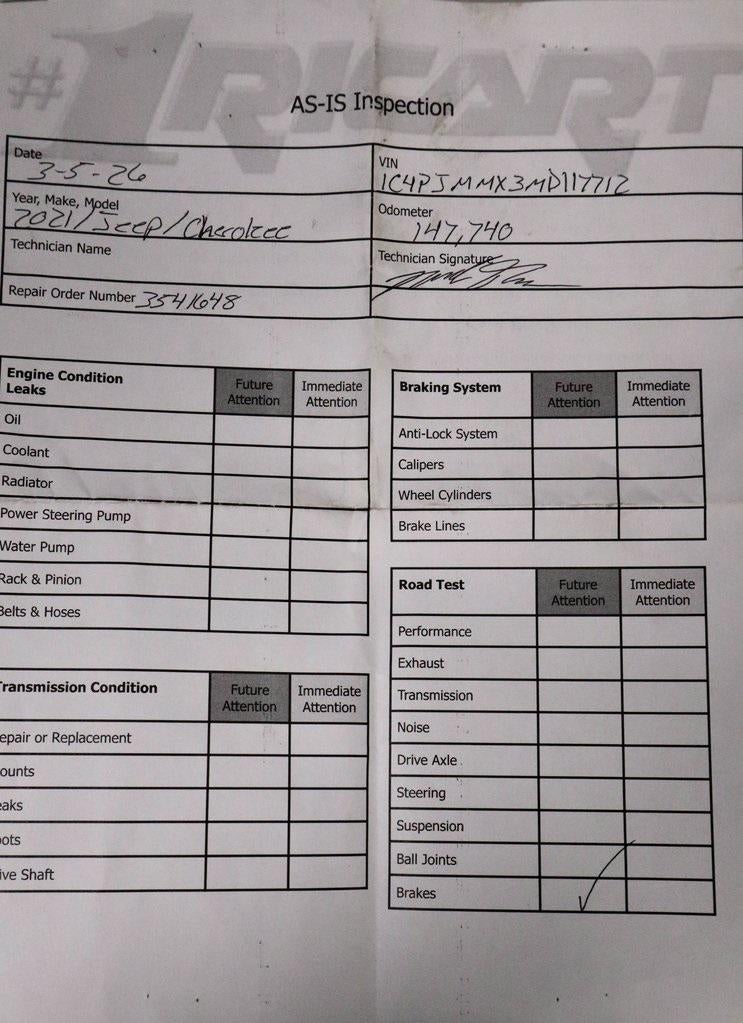 #1 RICART
AS-IS Inspection
Date 3-5-26
VIN 1C4PJMMX3MD117712
Year, Make, Model 2021/Jeep/Cherokee
Odometer 147,740
Technician Name
Technician Signature
Repair Order Number 3541648
Engine Condition Leaks Future Attention Immediate Attention
Oil
Coolant
Radiator
Power Steering Pump
Water Pump
Rack & Pinion
Belts & Hoses
Transmission Condition Future Attention Immediate Attention
epair or Replacement
ounts
eaks
oots
ive Shaft
Braking System Future Attention Immediate Attention
Anti-Lock System
Calipers
Wheel Cylinders
Brake Lines
Road Test Future Attention Immediate Attention
Performance
Exhaust
Transmission
Noise
Drive Axle
Steering
Suspension
Ball Joints
Brakes